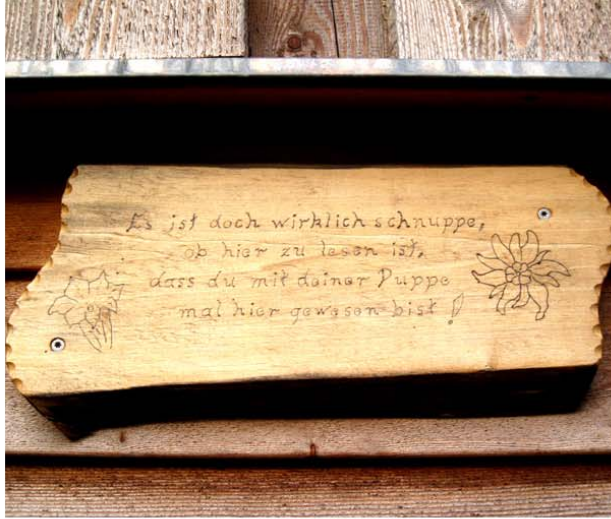 Es ist doch wirklich schnuppe,
ob hier zu lesen ist,
dass du mit deiner Puppe
mal hier gewesen bist!